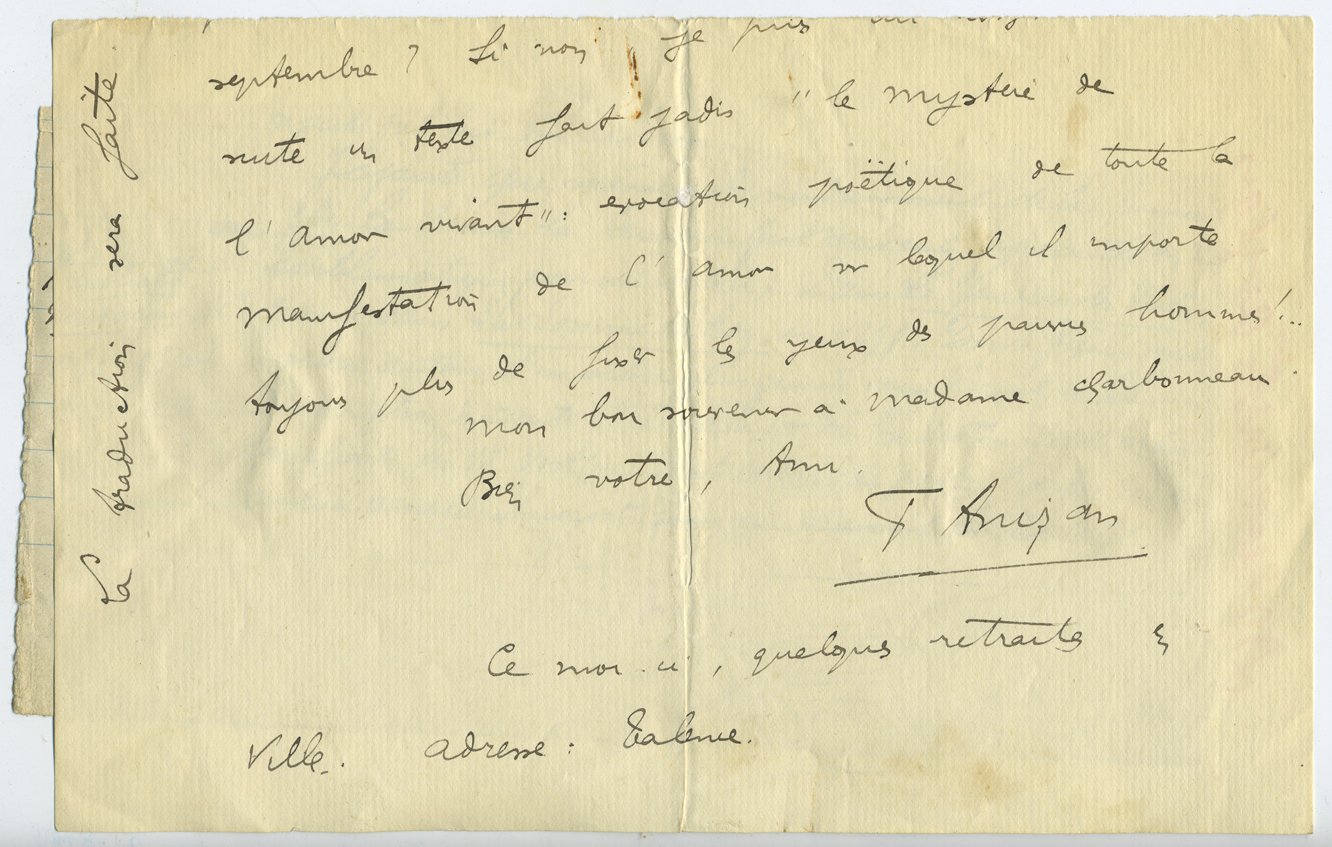 septembre ? Si non je puis
suite un texte fait jadis " le mystère de
l'amour vivant" : evocation poëtique de toute la
manifestation de l'amour sur lequel il importe
toujours plus de fixer les yeux des pauvres hommes !..
mon bon souvenir à madame Charbonneau.
Bien votre, Ami.
F Anizan
Ce mois-ci, quelques retraites en
Ville. adresse : Talence.
La traduction sera faite